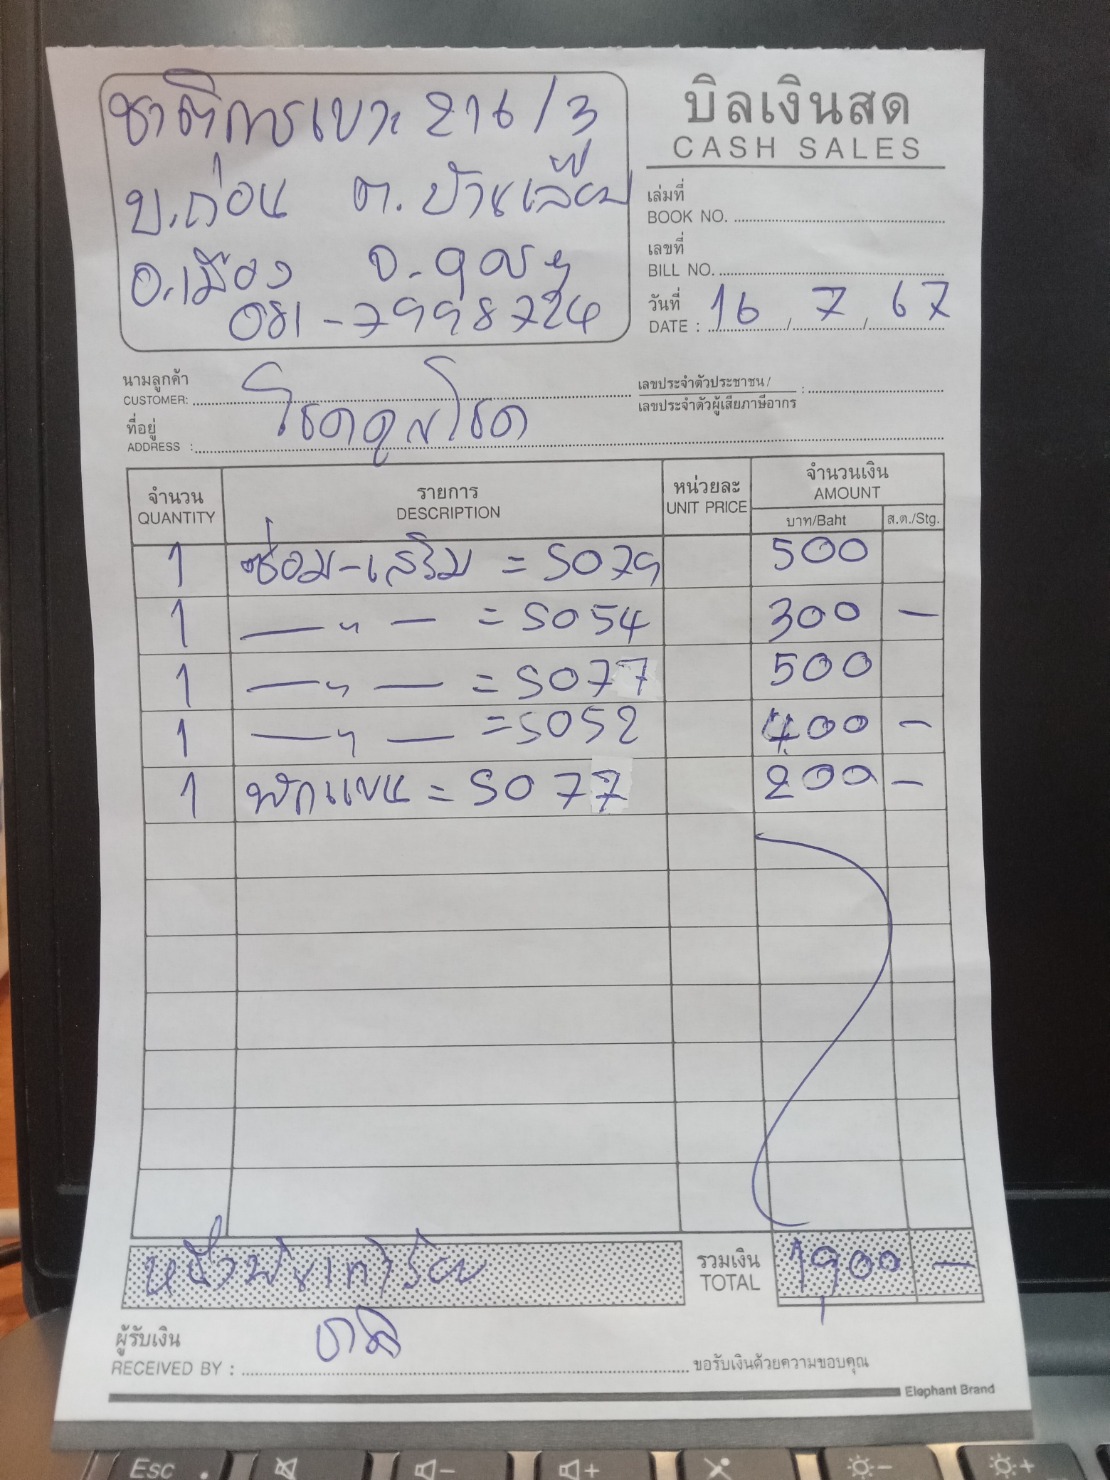 ชาติการเบาะ 216/3
บิลเงินสด
CASH SALES
บ.ถ่อน ต.บ้านเลื่อม
อ.เมือง จ.อุดรฯ
081-7998724
เล่มที่
BOOK NO.
เลขที่
BILL NO.
วันที่
DATE : 16 / 7 / 67
นามลูกค้า
CUSTOMER:
เลขประจำตัวประชาชน /
เลขประจำตัวผู้เสียภาษีอากร :
โชคดูลโชค
ที่อยู่
ADDRESS :
จำนวน รายการ หน่วยละ จำนวนเงิน
QUANTITY DESCRIPTION UNIT PRICE AMOUNT
บาท/Baht ส.ต./Stg.
1 ซ่อม-เสริม = S079 500
1 — " — = S054 300 —
1 — " — = S077 500
1 — " — = S052 400 —
1 พักแขน = S077 200 —
หนึ่งพันเก้าร้อย รวมเงิน 1,900 —
TOTAL
ผู้รับเงิน ชาติ
RECEIVED BY : ขอรับเงินด้วยความขอบคุณ
Elephant Brand
Esc